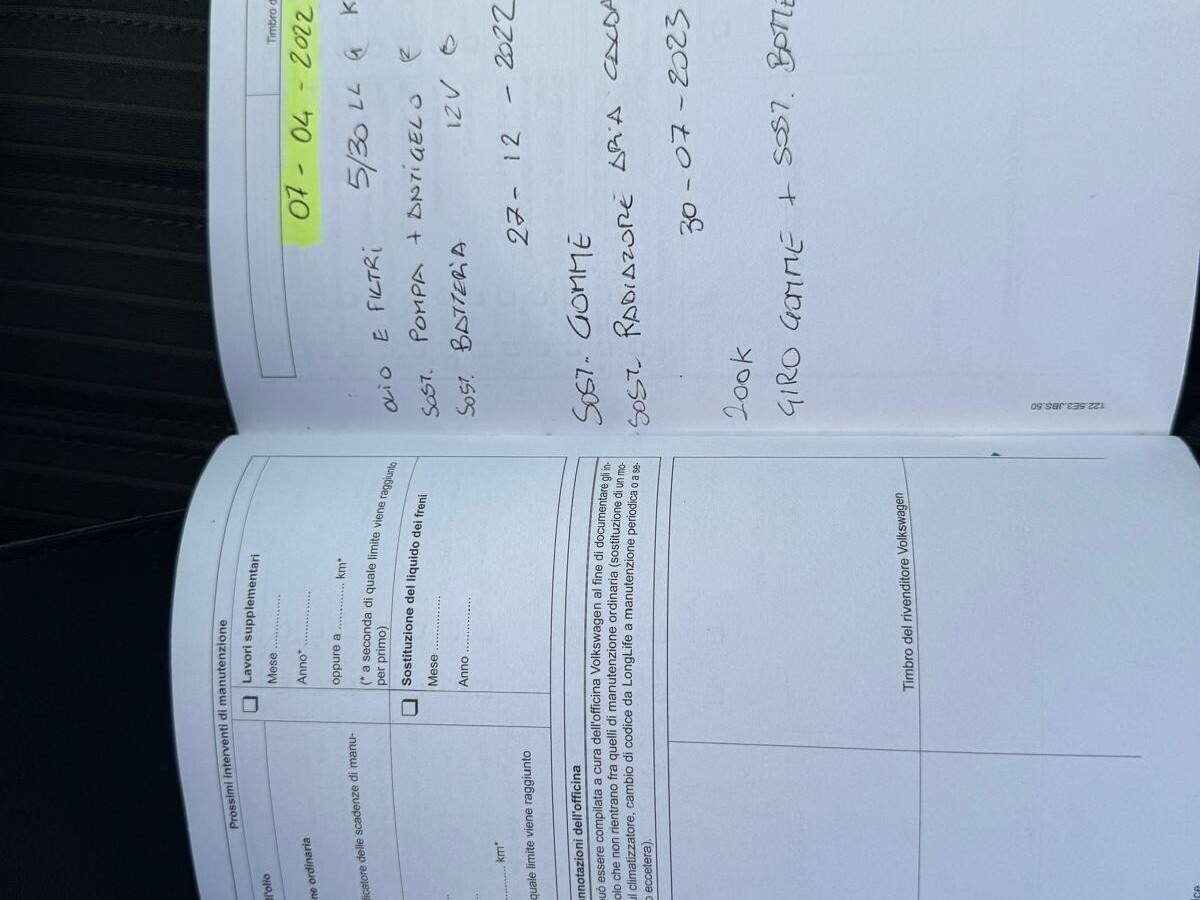 Prossimi interventi di manutenzione
Lavori supplementari
Mese
Anno*
oppure a ............ km*
(* a seconda di quale limite viene raggiunto
per primo)
Sostituzione del liquido dei freni
Mese
Anno
ne ordinaria
dicatore delle scadenze di manu-
km*
quale limite viene raggiunto
nnotazioni dell'officina
uò essere compilata a cura dell'officina Volkswagen al fine di documentare gli in-
olo che non rientrano fra quelli di manutenzione ordinaria (sostituzione di un mo-
l climatizzatore, cambio di codice da LongLife a manutenzione periodica o a se-
o eccetera).
Timbro del rivenditore Volkswagen
Timbro d
07 - 04 - 2022
OLIO E FILTRI 5/30 LL
SOST. POMPA + ANTIGELO
SOST. BATTERIA 12V
27 - 12 - 2022
SOST. GOMME
SOST. RADIATORE ARIA CALDA
30 - 07 - 2023
200K
GIRO GOMME + SOST. BATTE
122.5E3.JBS.50